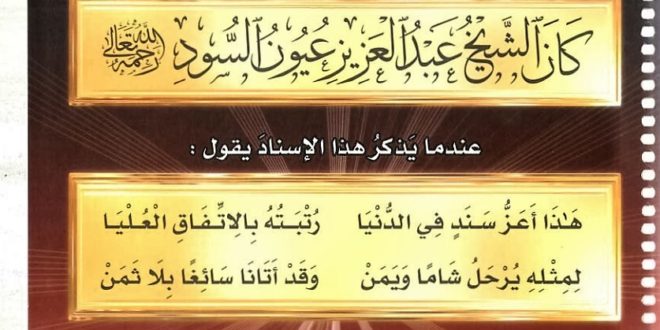 كَانَ ٱلشَّيْخُ عَبْدُ ٱلْعَزِيزِ عُيُونُ ٱلسُّودِ رَحِمَهُ اللَّهُ تَعَالَى
عندما يَذكرُ هذا الإسنادَ يقول :
هَٰذَا أَعَزُّ سَنَدٍ فِي الدُّنْيَا رُتْبَتُهُ بِالِاتِّفَاقِ الْعُلْيَا
لِمِثْلِهِ يُرْحَلُ شَامًا وَيَمَنْ وَقَدْ أَتَانَا سَائِغًا بِلَا ثَمَنْ